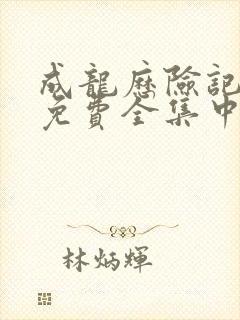 成龍歷險記
免費全集中
林炳輝